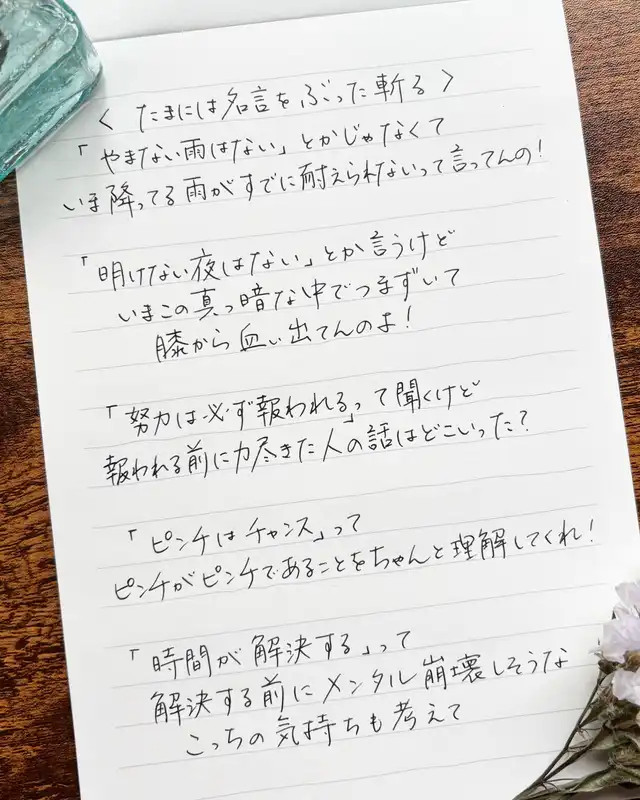 〈 たまには名言をぶった斬る 〉
「やまない雨はない」とかじゃなくて
いま降ってる雨がすでに耐えられないって言ってんの！
「明けない夜はない」とか言うけど
いまこの真っ暗な中でつまずいて
膝から血ぃ出てんのよ！
「努力は必ず報われる」って聞くけど
報われる前に力尽きた人の話はどこいった？
「ピンチはチャンス」って
ピンチがピンチであることをちゃんと理解してくれ！
「時間が解決する」って
解決する前にメンタル崩壊しそうな
こっちの気持ちも考えて